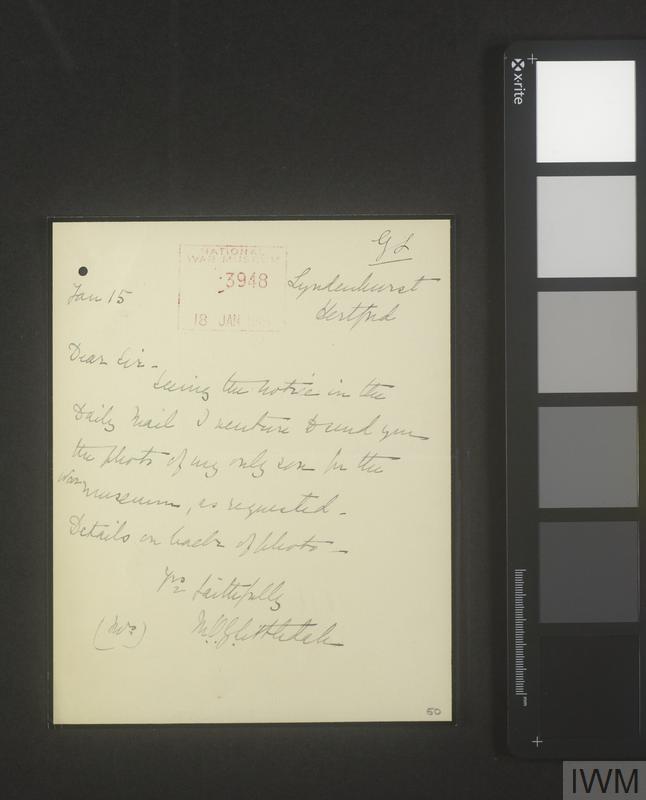 G L
NATIONAL
WAR MUSEUM
3948
18 JAN
Lyndenhurst
Hertford
Jan 15
Dear Sir -
Seeing the notice in the
Daily Mail I venture to send you
the photo of my only son for the
War
museum, as requested -
Details on back of photo -
Yrs faithfully
(Mrs)
50
x-rite
mm
IWM